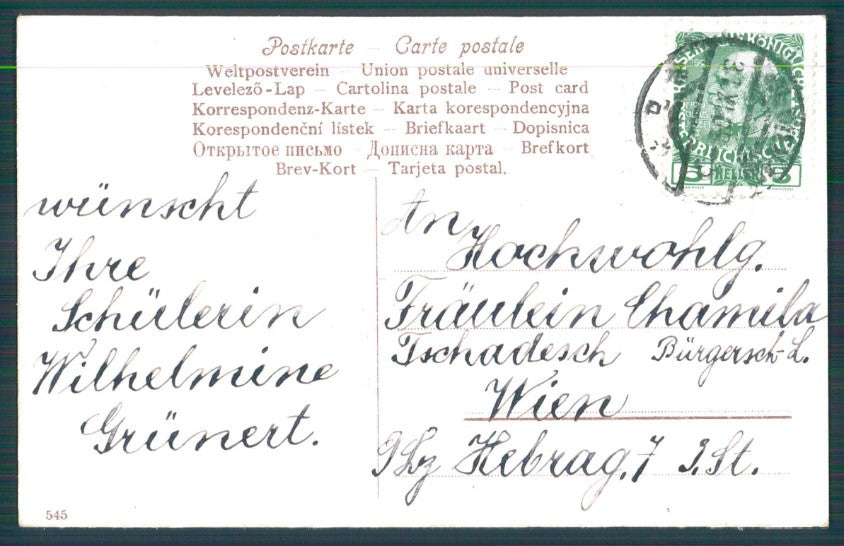 Postkarte – Carte postale
Weltpostverein – Union postale universelle
Levelező-Lap – Cartolina postale – Post card
Korrespondenz-Karte – Karta korespondencyjna
Korespondenční lístek – Briefkaart – Dopisnica
Открытое письмо – Дописна карта – Brefkort
Brev-Kort – Tarjeta postal.
wünscht
Ihre
Schülerin
Wilhelmine
Grünert.
An
Hochwohlg.
Fräulein Chamila
Tschadesch Bürgersch-L.
Wien
Hebrag. 7 3. St.
5 HELLER 5
545